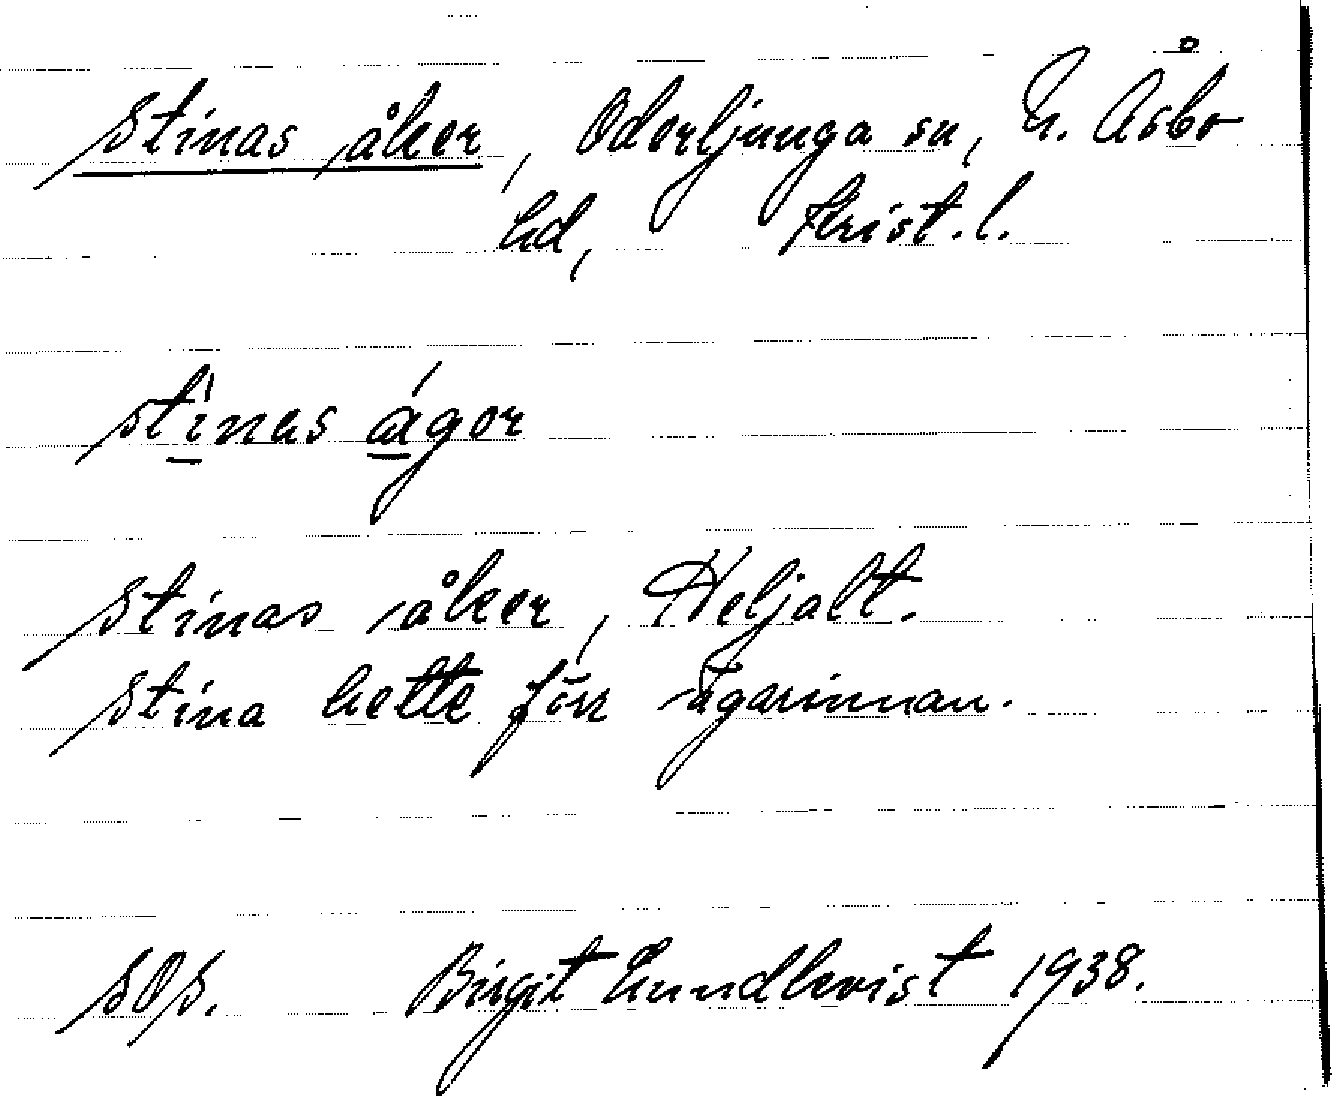 Stinas åker, Oderljunga sn, N. Åsbo
hd, Krist. l.
stìnas ágor
Stinas åker, Heljalt.
Stina hette förr ägarinnan.
SOS. Birgit Lundkvist 1938.